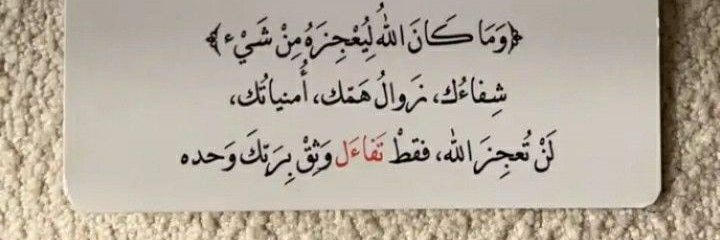 ﴿وَمَا كَانَ اللهُ لِيُعْجِزَهُ مِنْ شَيْءٍ﴾
شِفاءُك، زَوالُ هَمّك، أُمنياتُك،
لَنْ تُعجِزَ الله، فقطْ تَفاءَل وَثِقْ بِرَبّكَ وَحده